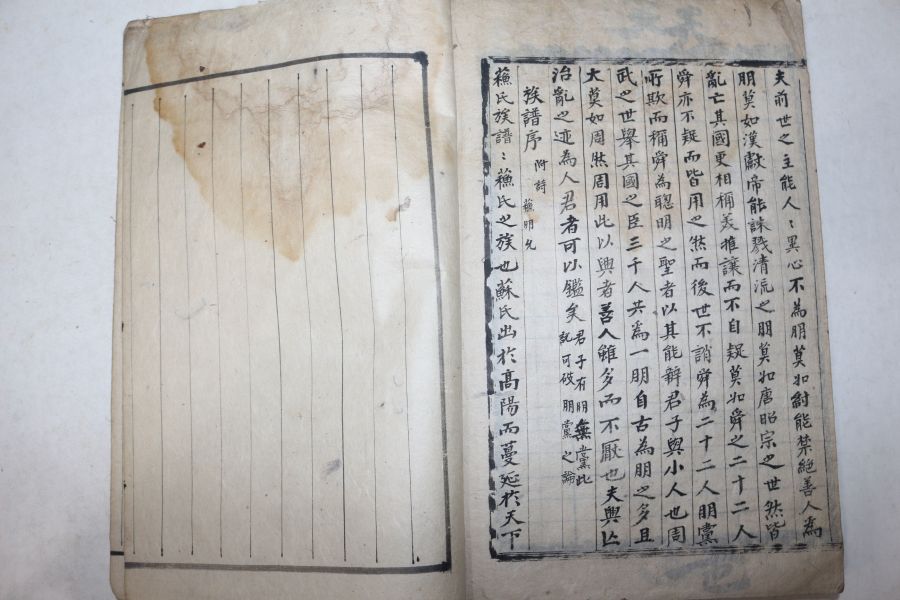 夫前世之主能人〻異心不為朋莫如紂能禁絶善人為
朋莫如漢獻帝能誅戮清流之朋莫如唐昭宗之世然皆
亂亡其國更相稱羙推讓而不自疑莫如舜之二十二人
舜亦不疑而皆用之然而後世不誚舜為二十二人朋黨
所欺而稱舜為聰明之聖者以其能辨君子與小人也周
武之世舉其國之臣三千人共為一朋自古為朋之多且
大莫如周然周用此以興者善人雖多而不厭也夫興亡
治亂之迹為人君者可以鑑矣
君子有朋無黨此
記可破朋黨之論
族譜序
附詩
蘇明允
蘓氏族譜〻蘓氏之族也蘇氏出於髙陽而蔓延於天下